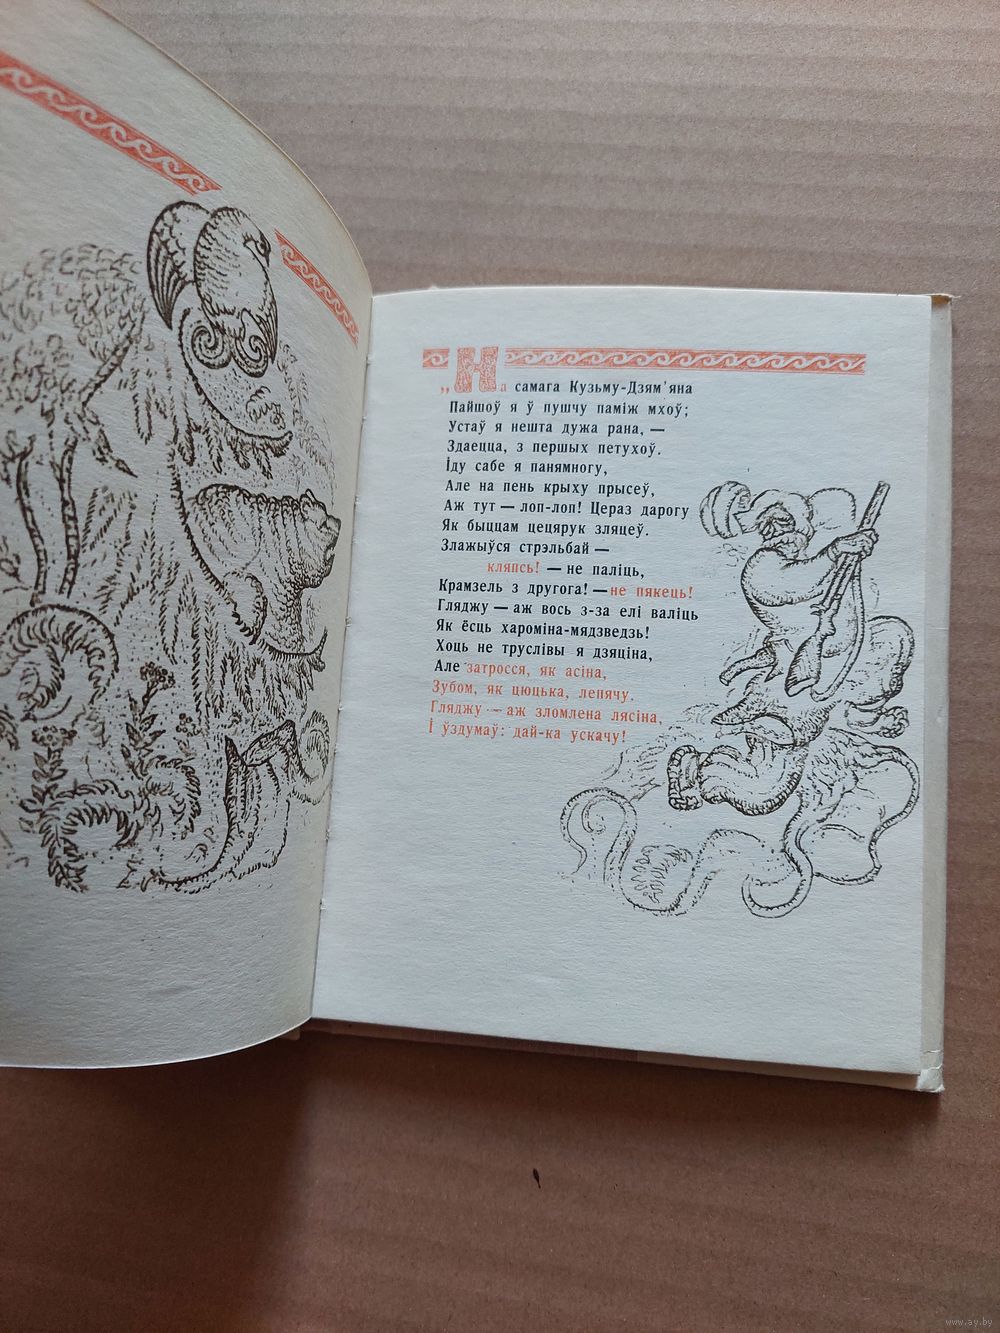 „На самага Кузьму-Дзям'яна
Пайшоў я ў пушчу паміж мхоў;
Устаў я нешта дужа рана, —
Здаецца, з першых петухоў.
Іду сабе я панямногу,
Але на пень крыху прысеў,
Аж тут — лоп-лоп! Цераз дарогу
Як быццам цецярук зляцеў.
Злажыўся стрэльбай —
кляпсь! — не паліць,
Крамзель з другога! — не пякець!
Гляджу — аж вось з-за елі валіць
Як ёсць хароміна-мядзведзь!
Хоць не труслівы я дзяціна,
Але затросся, як асіна,
Зубом, як цюцька, лепячу.
Гляджу — аж зломлена лясіна,
І ўздумаў: дай-ка ускачу!
www.ay.by